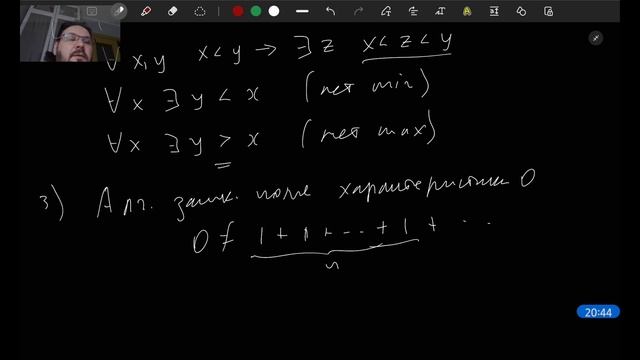 ∀ x, y x < y → ∃ z x < z < y
∀ x ∃ y < x (нет min)
∀ x ∃ y > x (нет max)
3) Алг. замк. поле характеристики 0
0 ≠ 1 + 1 + ... + 1 + ...
n
20:44